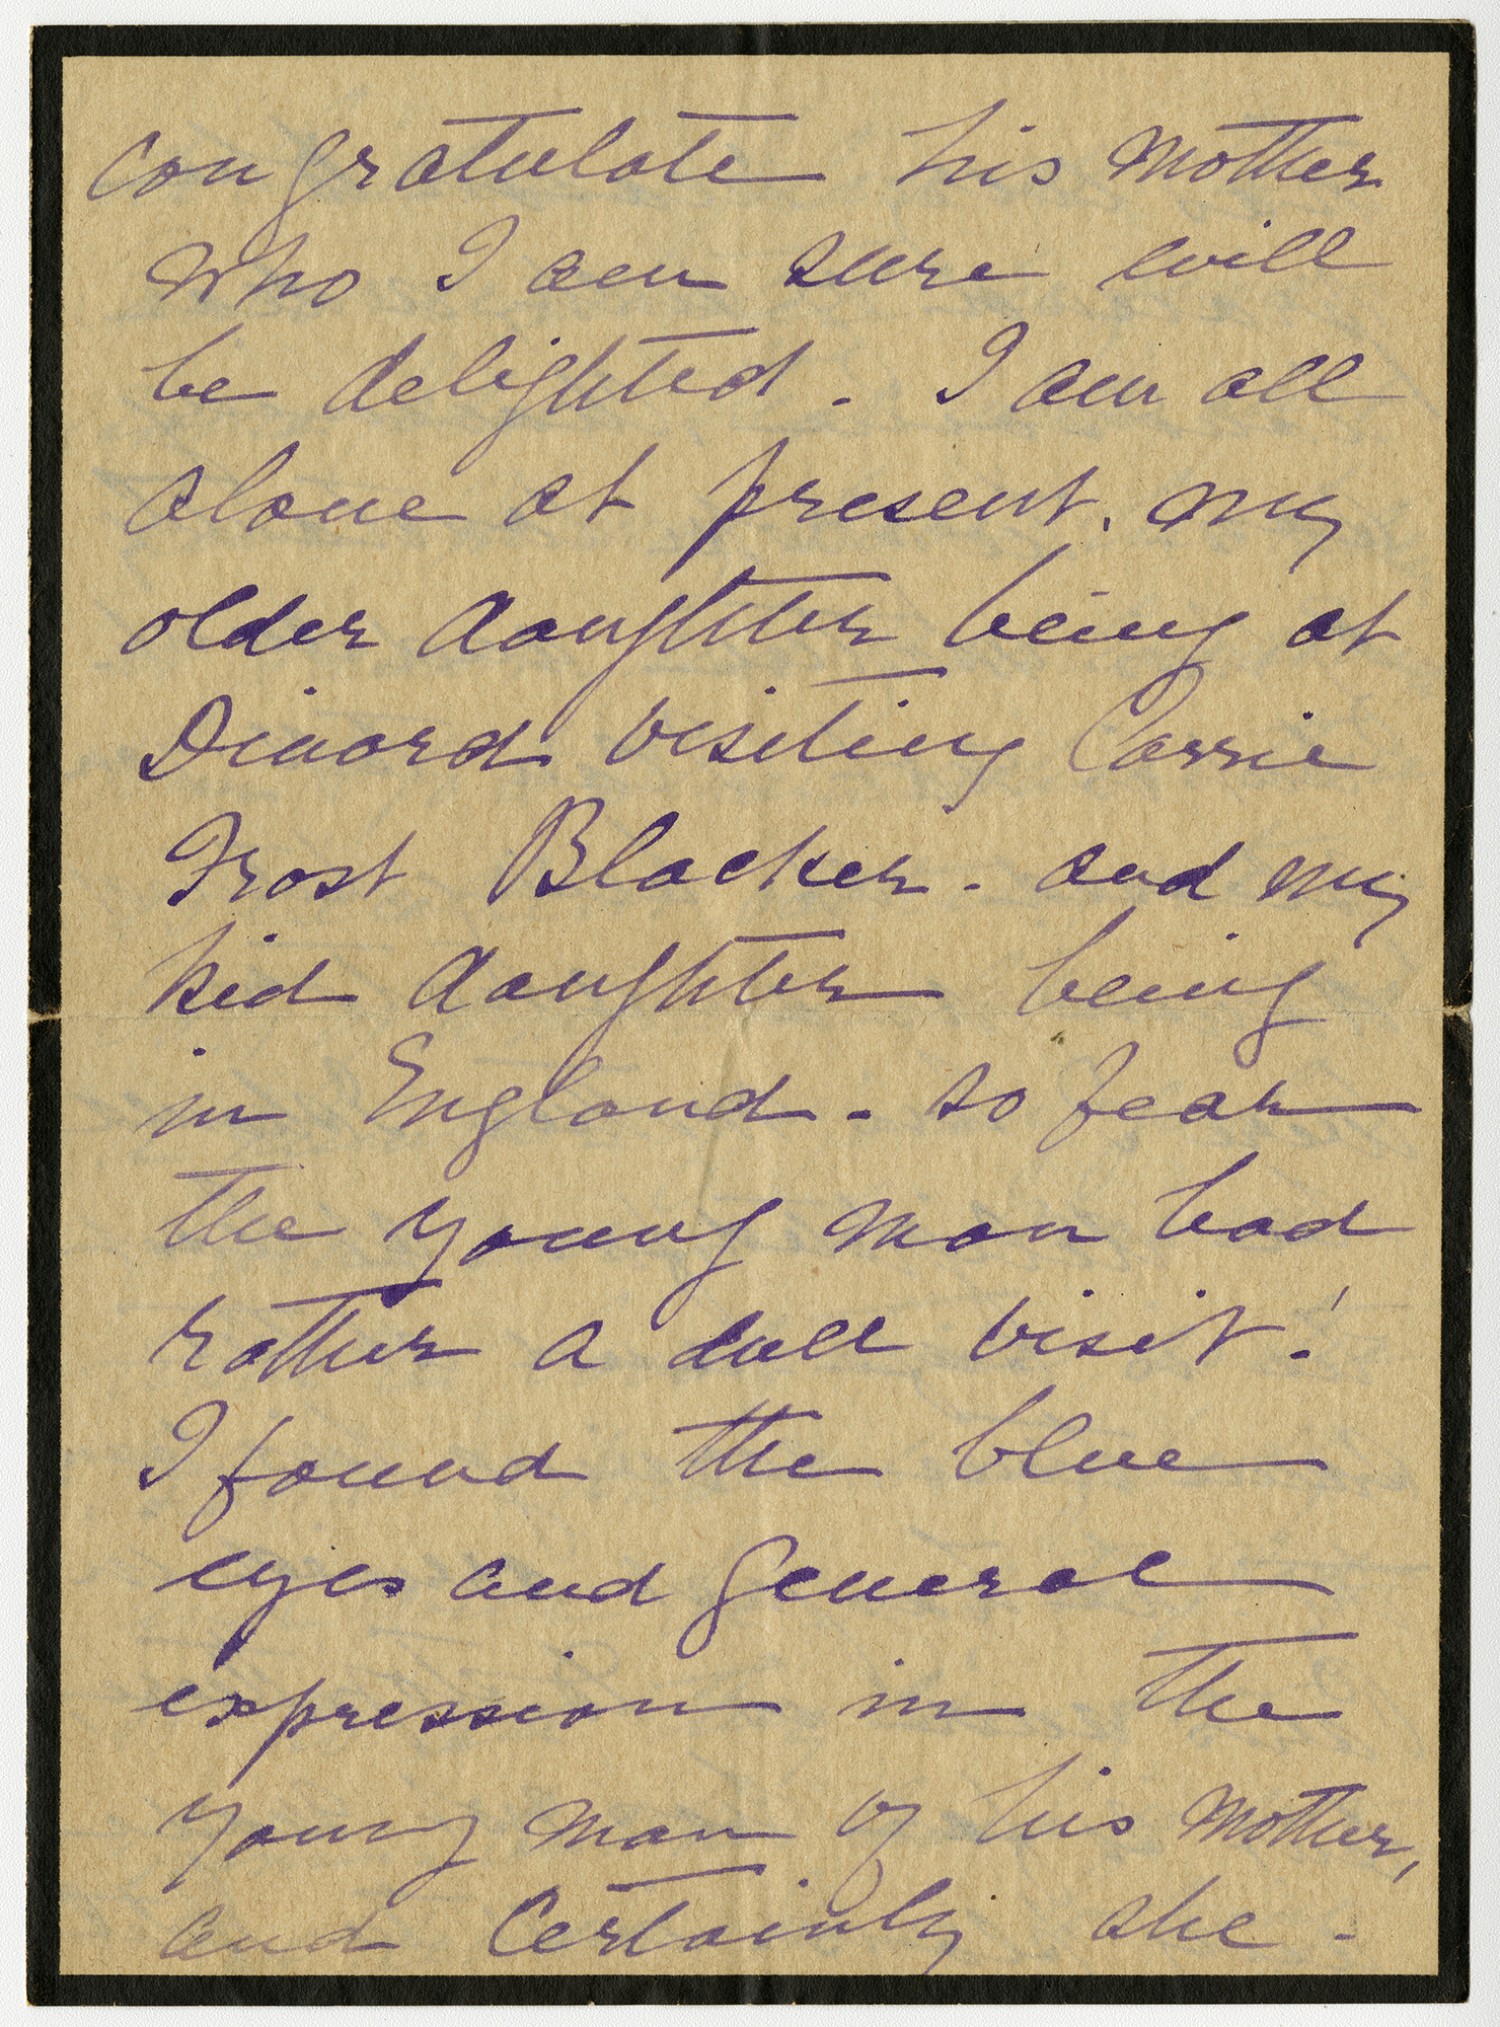 congratulate his Mother
who I am sure will
be delighted. I am all
alone at present. my
older daughter being at
Dinard visiting Carrie
Frost Blacker - and my
kid daughter being
in England - so fear
the young man had
rather a dull visit!
I found the blue
eyes and general
expression in the
young man of his Mother,
and Certainly she -